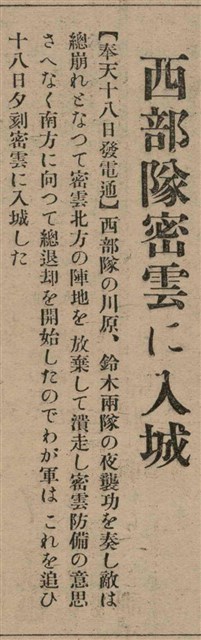 西部隊密雲に入城
【奉天十八日發電通】西部隊の川原、鈴木兩隊の夜襲功を奏し敵は
總崩れとなつて密雲北方の陣地を放棄して潰走し密雲防備の意思
さへなく南方に向つて總退却を開始したのでわが軍はこれを追ひ
十八日夕刻密雲に入城した